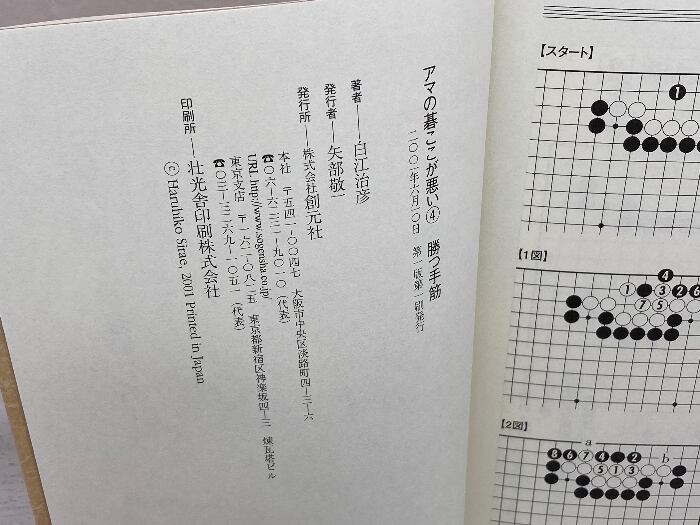 アマの碁ここが悪い④ 勝つ手筋
二〇〇一年六月一〇日 第一版第一刷発行
著者――白江治彦
発行者――矢部敬一
発行所――株式会社創元社
本社 〒五四一-〇〇四七 大阪市中央区淡路町四-三-六
☎〇六-六二三一-九〇一〇(代表)
URL http://www.sogensha.co.jp/
東京支店 〒一六二-〇八二五 東京都新宿区神楽坂四-三 煉瓦塔ビル
☎〇三-三二六九-一〇五一(代表)
印刷所――壮光舎印刷株式会社
© Haruhiko Sirae, 2001 Printed in Japan
【スタート】
1
【1図】
4
1 3 2 6
7 5
【2図】
a
8 6 7 4 2 b
5 1 3